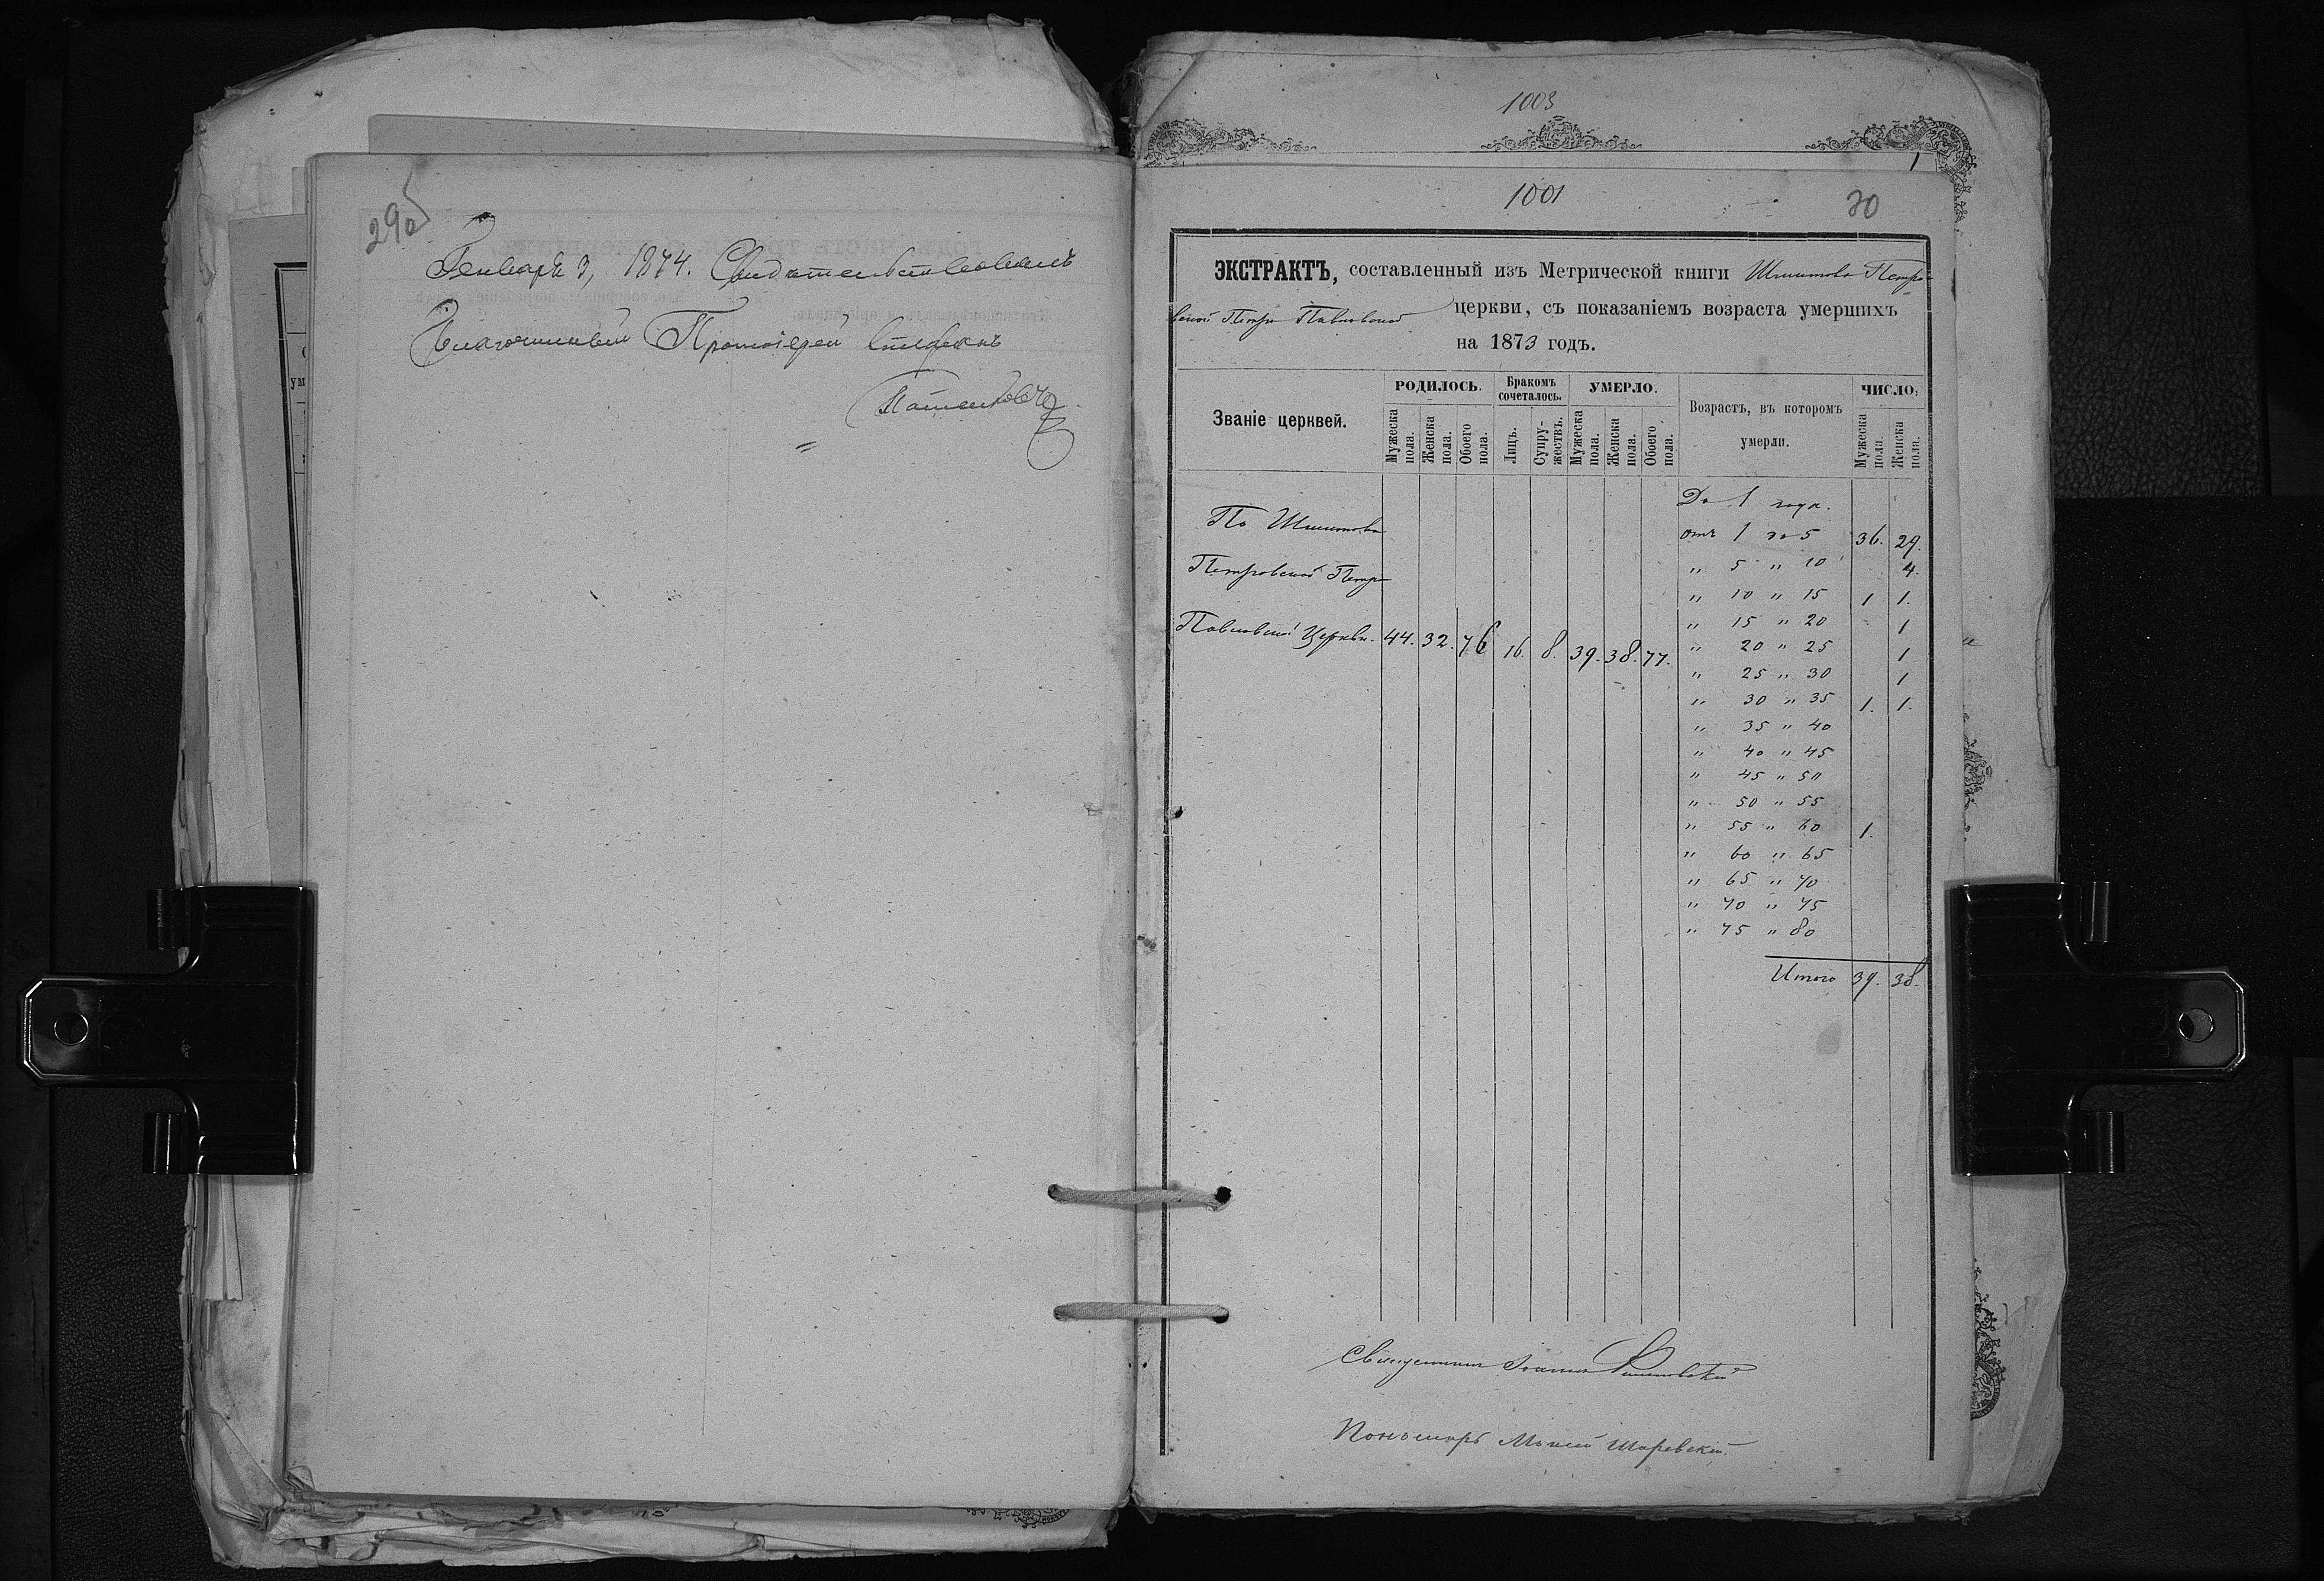 29об
Генваря 3, 1874. Свидетельствовалъ
Благочинный Протоіерей Стефанъ
1003
1001
30
ЭКСТРАКТЪ, составленный изъ Метрической книги Шпитово Петро-
вской Петро Павловской церкви, съ показаніемъ возраста умершихъ
на 1873 годъ.
Званіе церквей.
РОДИЛОСЬ.
Мужеска пола.
Женска пола.
Обоего пола.
Бракомъ сочеталось.
Лицъ.
Супружествъ.
УМЕРЛО.
Мужеска пола.
Женска пола.
Обоего пола.
Возрастъ, въ которомъ
умерли.
ЧИСЛО.
Мужеска пола.
Женска пола.
По Шпитово
Петровской Петро
Павловской Церкви. 44. 32. 76 16. 8. 39. 38. 77.
До 1 года.
отъ 1 до 5 36. 29.
" 5 " 10 4.
" 10 " 15 1 1.
" 15 " 20 1
" 20 " 25 1
" 25 " 30 1
" 30 " 35 1. 1.
" 35 " 40
" 40 " 45
" 45 " 50
" 50 " 55
" 55 " 60 1.
" 60 " 65
" 65 " 70
" 70 " 75
" 75 " 80
Итого 39. 38.
Священникъ Іоаннъ
Пономарь Моисей Шаревскій